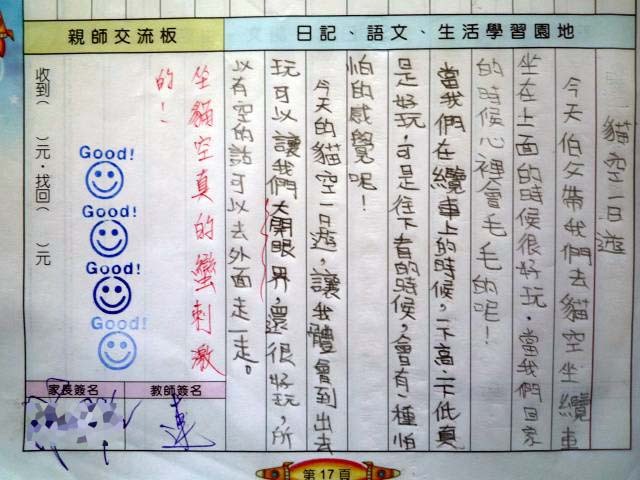 親師交流板
日記、語文、生活學習園地
貓空一日遊
今天伯父帶我們去貓空坐纜車
坐在上面的時候很好玩,當我們回家
的時候心裡會毛毛的呢!
當我們在纜車上的時候,一下高一下低真
是好玩,可是往下看的時候,會有一種怕
怕的感覺呢!
今天的貓空一日遊,讓我體會到出去
玩可以讓我們大開眼界,還很好玩,所
以有空的話可以去外面走一走。
坐貓空真的蠻刺激
的!
Good!
Good!
Good!
Good!
收到( )元,找回( )元
教師簽名
家長簽名
第17頁